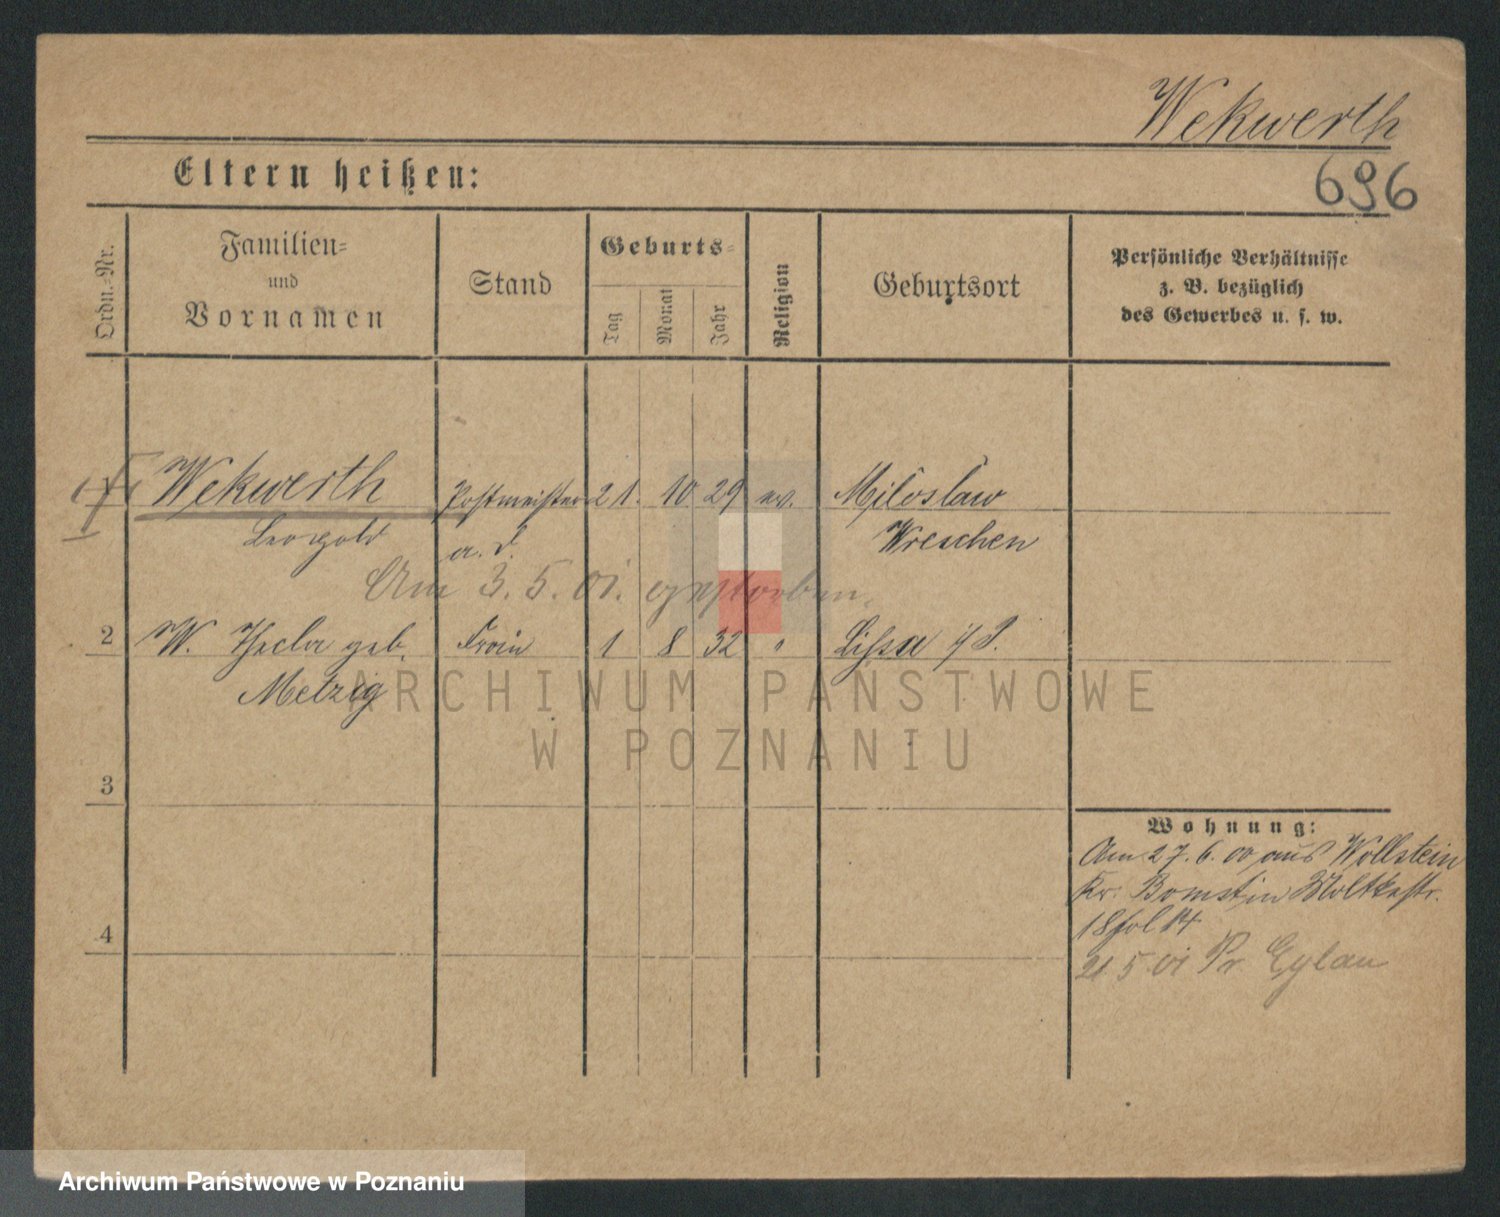 Wekwerth
696
Eltern heißen:
Ordn.-Nr.
Familien-
und
Vornamen
Stand
Geburts-
Tag
Monat
Jahr
Religion
Geburtsort
Persönliche Verhältnisse
z. B. bezüglich
des Gewerbes u. s. w.
1 Wekwerth Postmeister 21. 10 29 ev. Miloslaw
Leopold a. D. Wreschen
Am 3. 5. 01. gestorben.
2 W. Thecla geb. Frau 1 8 32 " Lissa i/P.
Metzig
3
4
Wohnung:
Am 27. 6. 00 aus Wollstein
Kr. Bomst in Moltkestr.
18 fol 14
21 5 01 Pr Eylau
ARCHIWUM PAŃSTWOWE
W POZNANIU
Archiwum Państwowe w Poznaniu